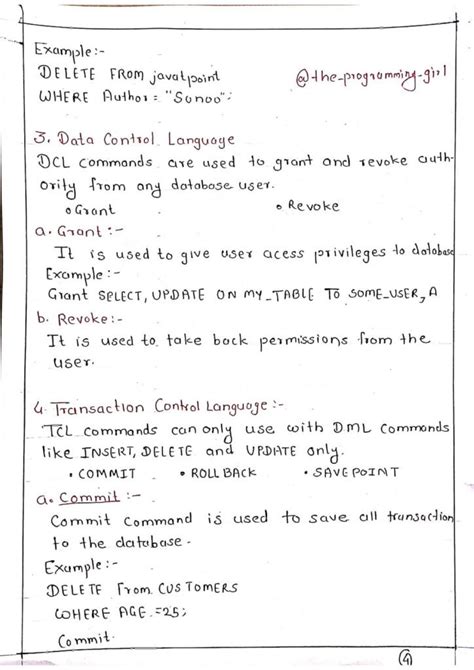 Example:-
DELETE FROM javatpoint @the-programming-girl
WHERE Author = "Sonoo";
3. Data Control Language
DCL commands are used to grant and revoke auth-
ority from any database user.
o Grant • Revoke
a. Grant :-
It is used to give user acess privileges to database
Example :-
Grant SELECT, UPDATE ON MY_TABLE TO SOME_USER, A
b. Revoke:-
It is used to take back permissions from the
user.
4. Transaction Control Language :-
TCL commands can only use with DML commands
like INSERT, DELETE and UPDATE only.
• COMMIT • ROLLBACK • SAVEPOINT
a. Commit :-
Commit command is used to save all transaction
to the database.
Example:-
DELETE From CUSTOMERS
WHERE AGE =25;
Commit.
4